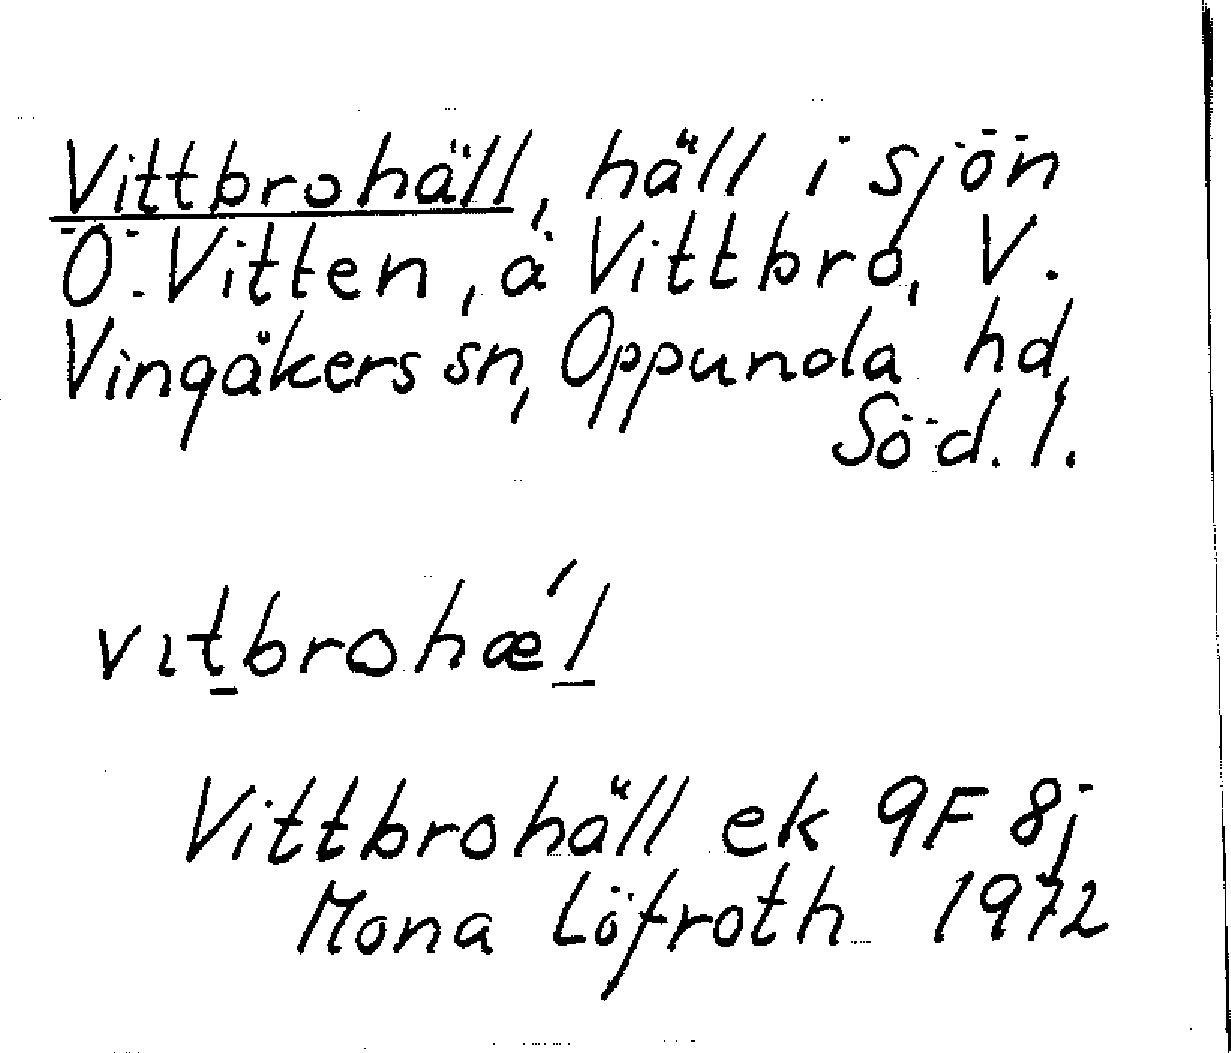 Vittbrohäll, häll i sjön
Ö. Vitten, å Vittbro, V.
Vingåkers sn, Oppunda hd,
Söd. l.
vıt̲brohæ´l̲
Vittbrohäll ek 9F 8j
Mona Löfroth 1972